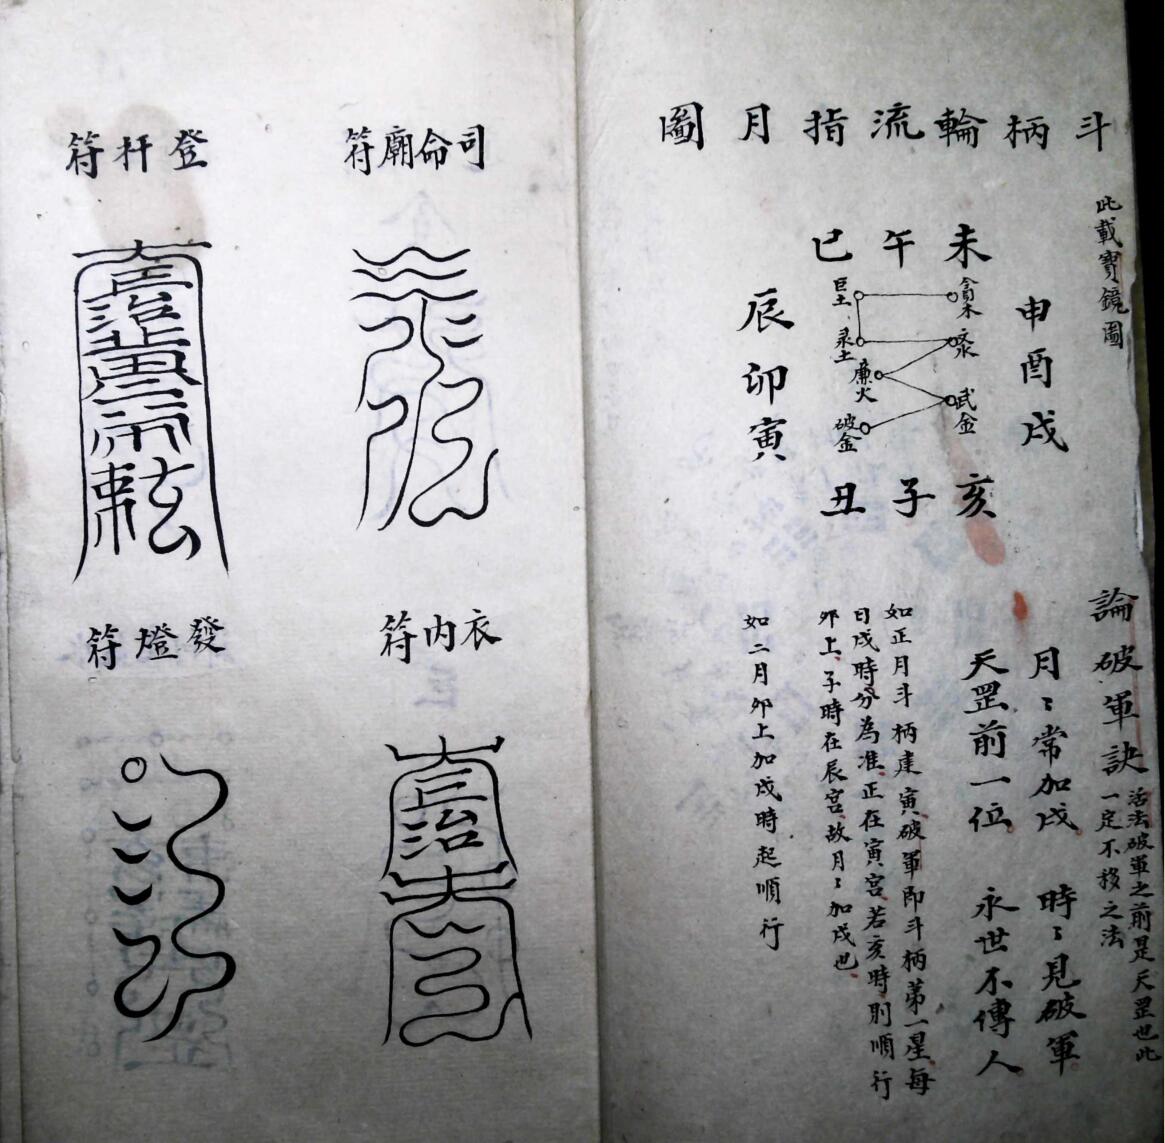 斗柄輪流指月圖
此載寶鏡圖
未 午 巳
申酉戌
辰卯寅
亥 子 丑
貪木
文水
武金
巨土
彔土
廉火
破金
論破軍訣
活法破軍之前是天罡也此
一定不移之法
月〻常加戌 時〻見破軍
天罡前一位 永世不傳人
如正月斗柄建寅破軍即斗柄第一星每
日戌時分為准正在寅宮若亥時則順行
卯上子時在辰宮故月〻加戌也
如二月卯上加戌時起順行
司命廟符
衣內符
登杆符
發燈符